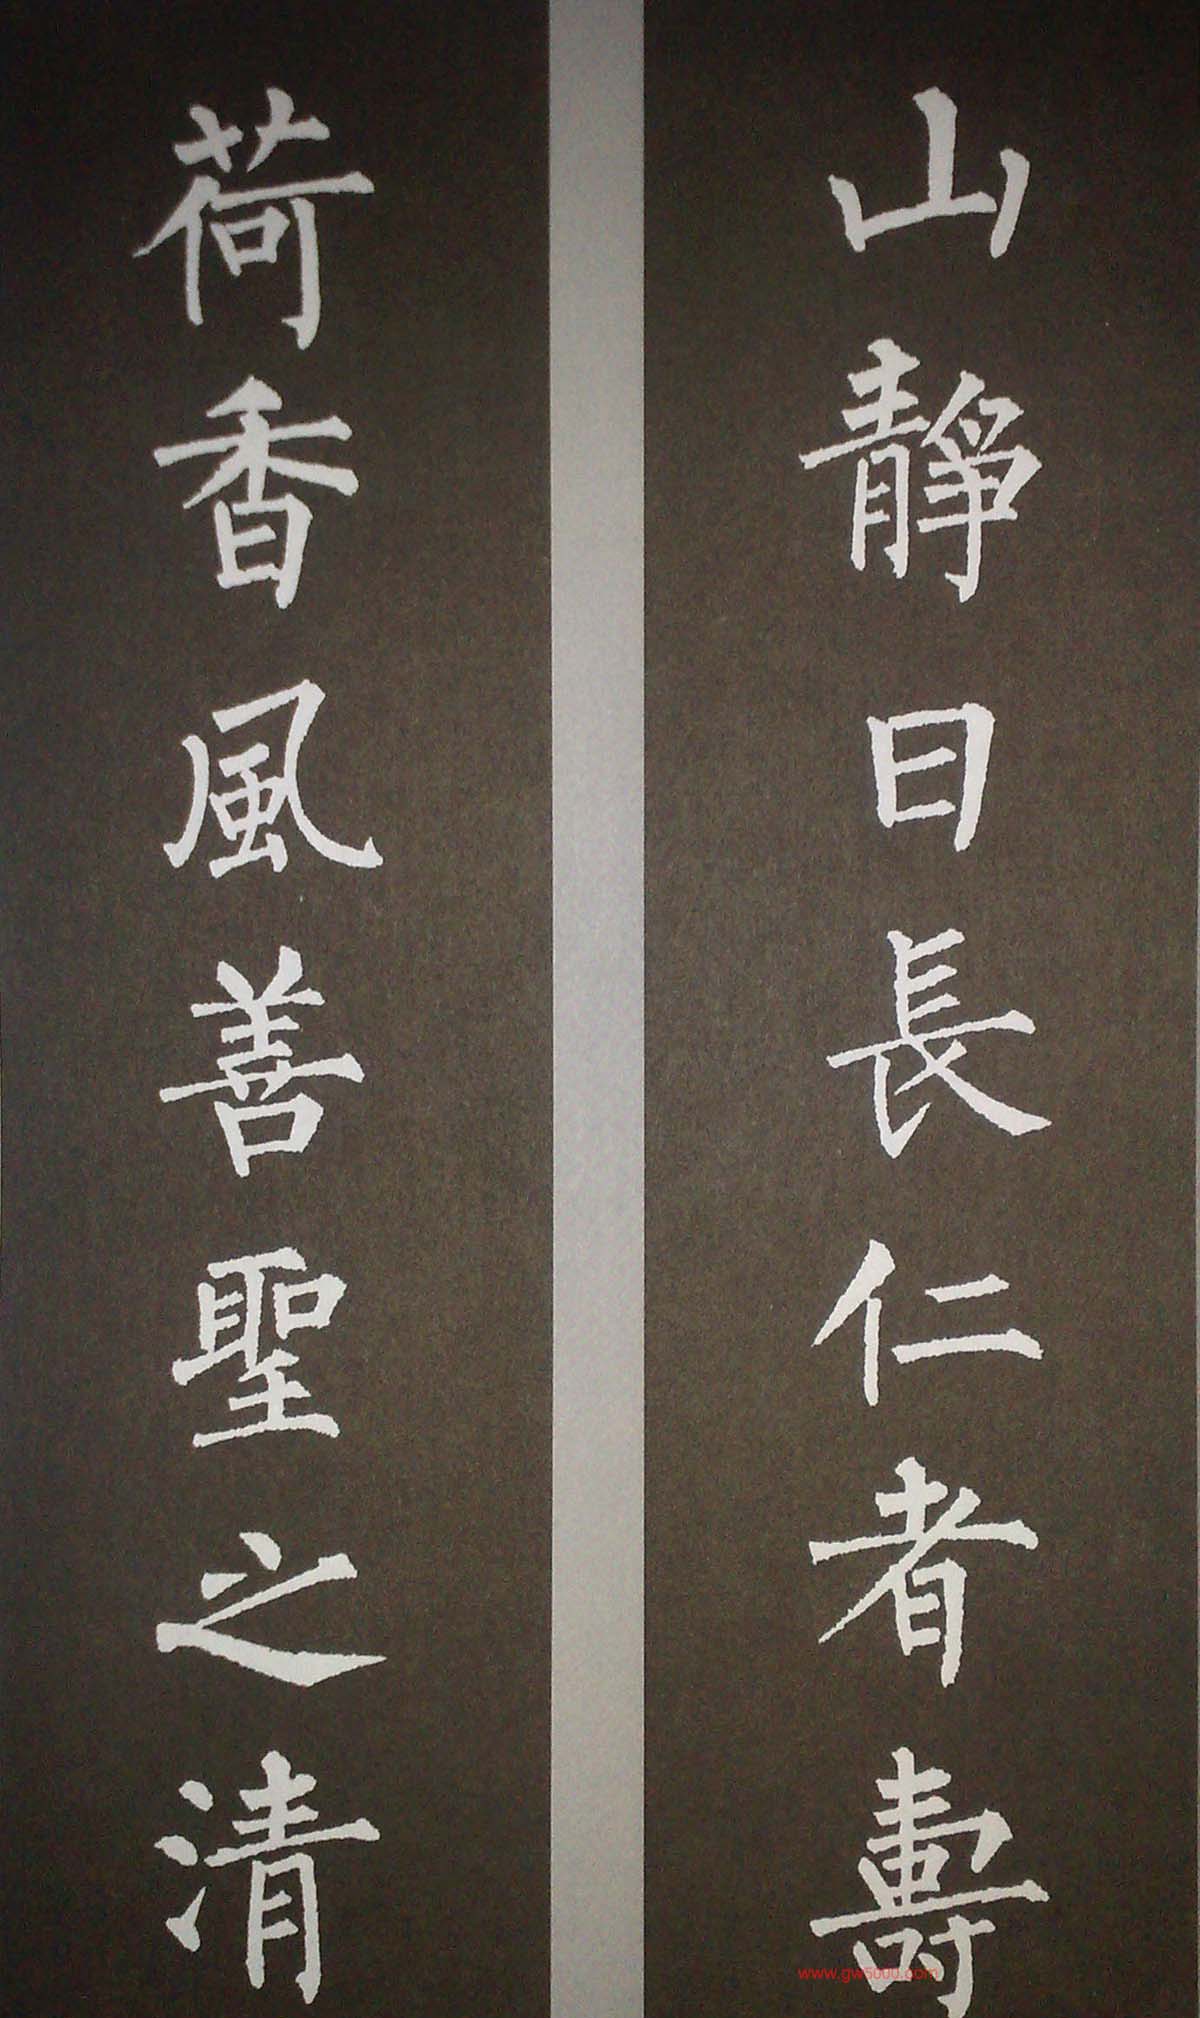 山靜日長仁者壽
荷香風善聖之清
www.gw5000.com